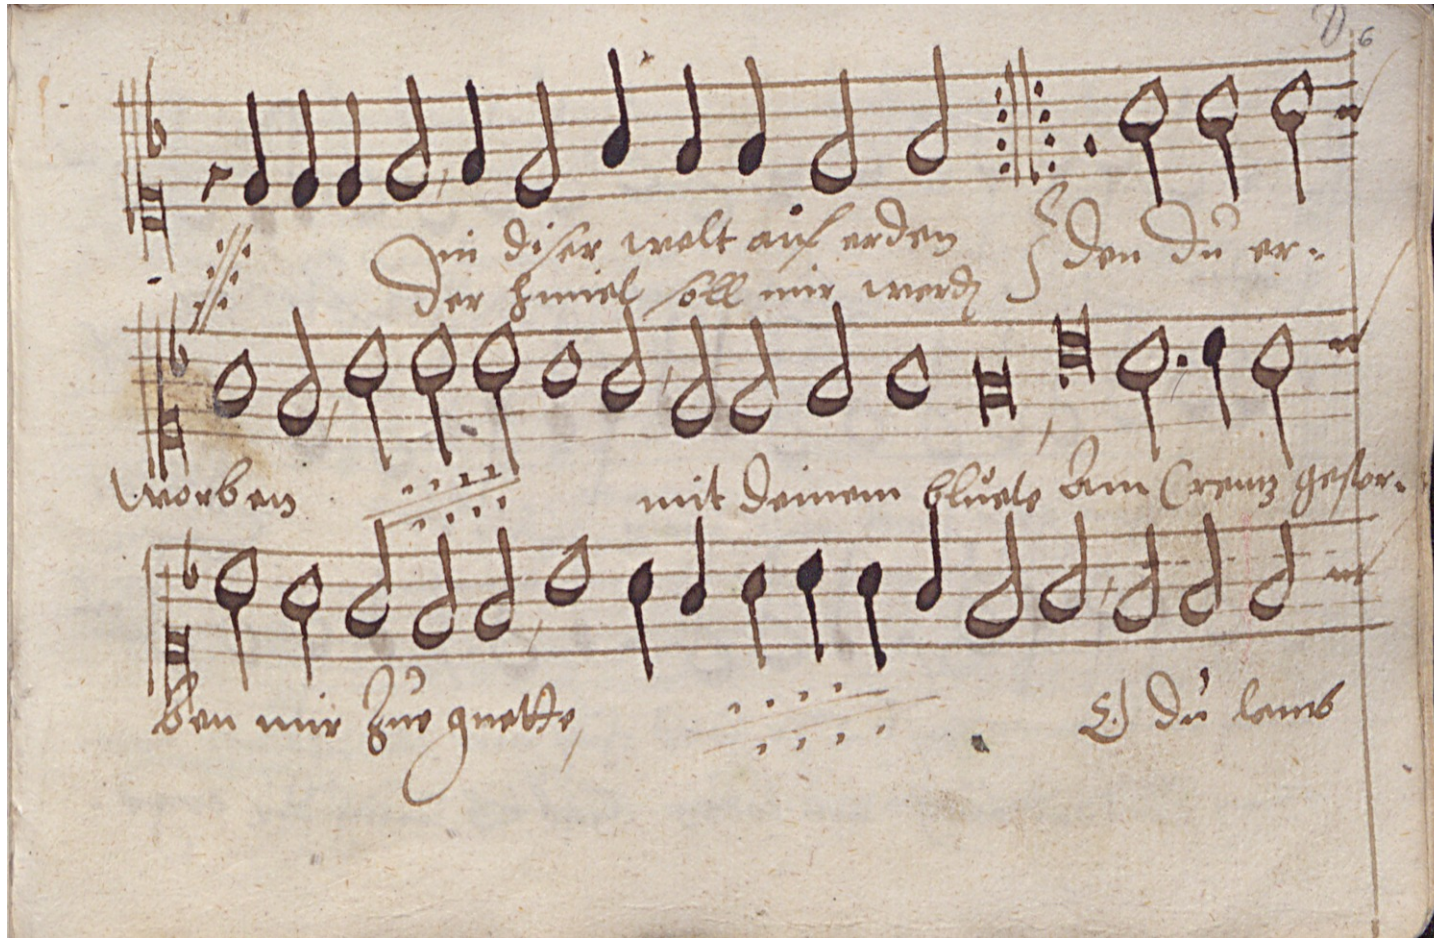 D 6
in diser welt auf erden
Der himel soll mir werdn
den du er-
worben mit deinem bluete Am Creuz gestor-
ben mir zue guette, O du lamb